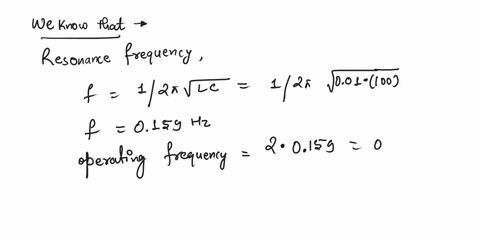 We know that →
Resonance frequency,
f = 1/2π √LC = 1/2π √0.01•(100)
f = 0.159 Hz
operating frequency = 2 • 0.159 = 0